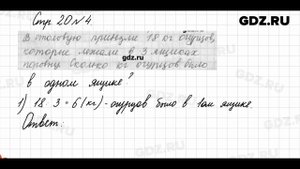 GDZ.RU
Стр 20 № 4
В столовую привезли 18 кг огурцов,
которые лежали в 3 ящиках
поровну. Сколько кг огурцов было
gdz.ru
в одном ящике?
1) 18 : 3 = 6 (кг) - огурцов было в 1ом ящике.
Ответ:
GDZ.RU
GDZ.RU